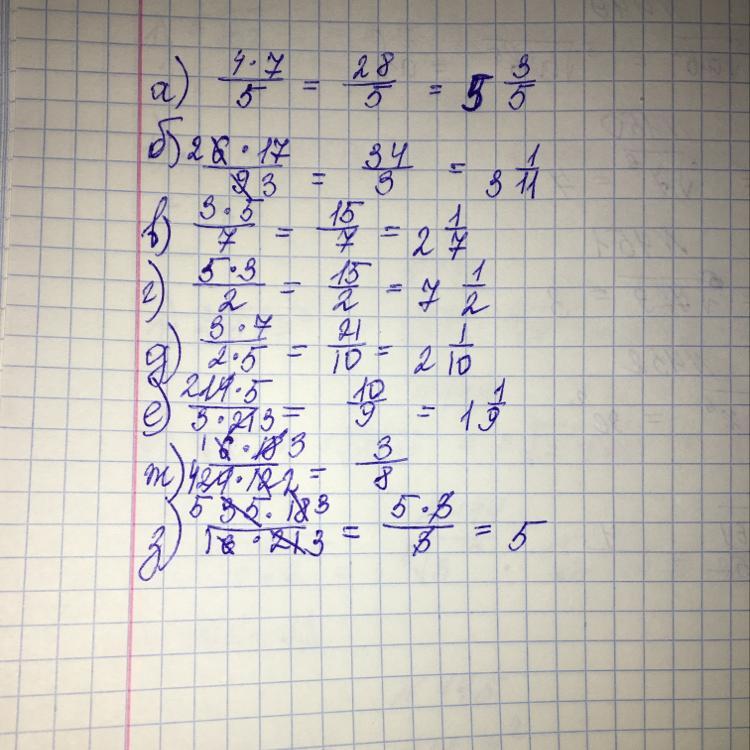 а) 4·7/5 = 28/5 = 5 3/5
б) 2 6·17/9 3 = 34/3 = 3 1/11
в) 3·5/7 = 15/7 = 2 1/7
г) 5·3/2 = 15/2 = 7 1/2
д) 3·7/2·5 = 21/10 = 2 1/10
е) 2 14·5/3·21 3 = 10/9 = 1 1/9
ж) 1 6·18 3/4 24·12 2 = 3/8
з) 5 35·18 3/1 6·21 3 = 5·3/3 = 5